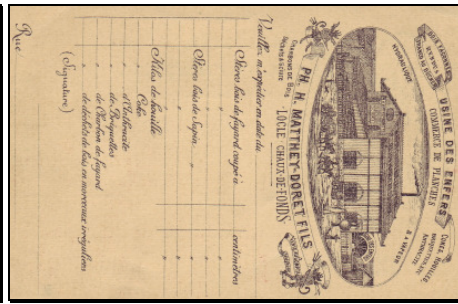 USINE DES ENFERS
COMMERCE DE PLANCHES
HYDRAULIQUE
& A VAPEUR
PH. H. MATTHEY-DORET FILS
LOCLE CHAUX-DE-FONDS
CHARBONS DE BOIS
Veuillez m'expédier en date du
Stères bois de foyard coupé à centimètres
Stères bois de Sapin " "
" " "
Kilos de houille
" Coke
" d'Anthracite
" de Briquettes
" de Charbon de foyard
" de déchets de bois en morceaux irréguliers
(Signature)
Rue